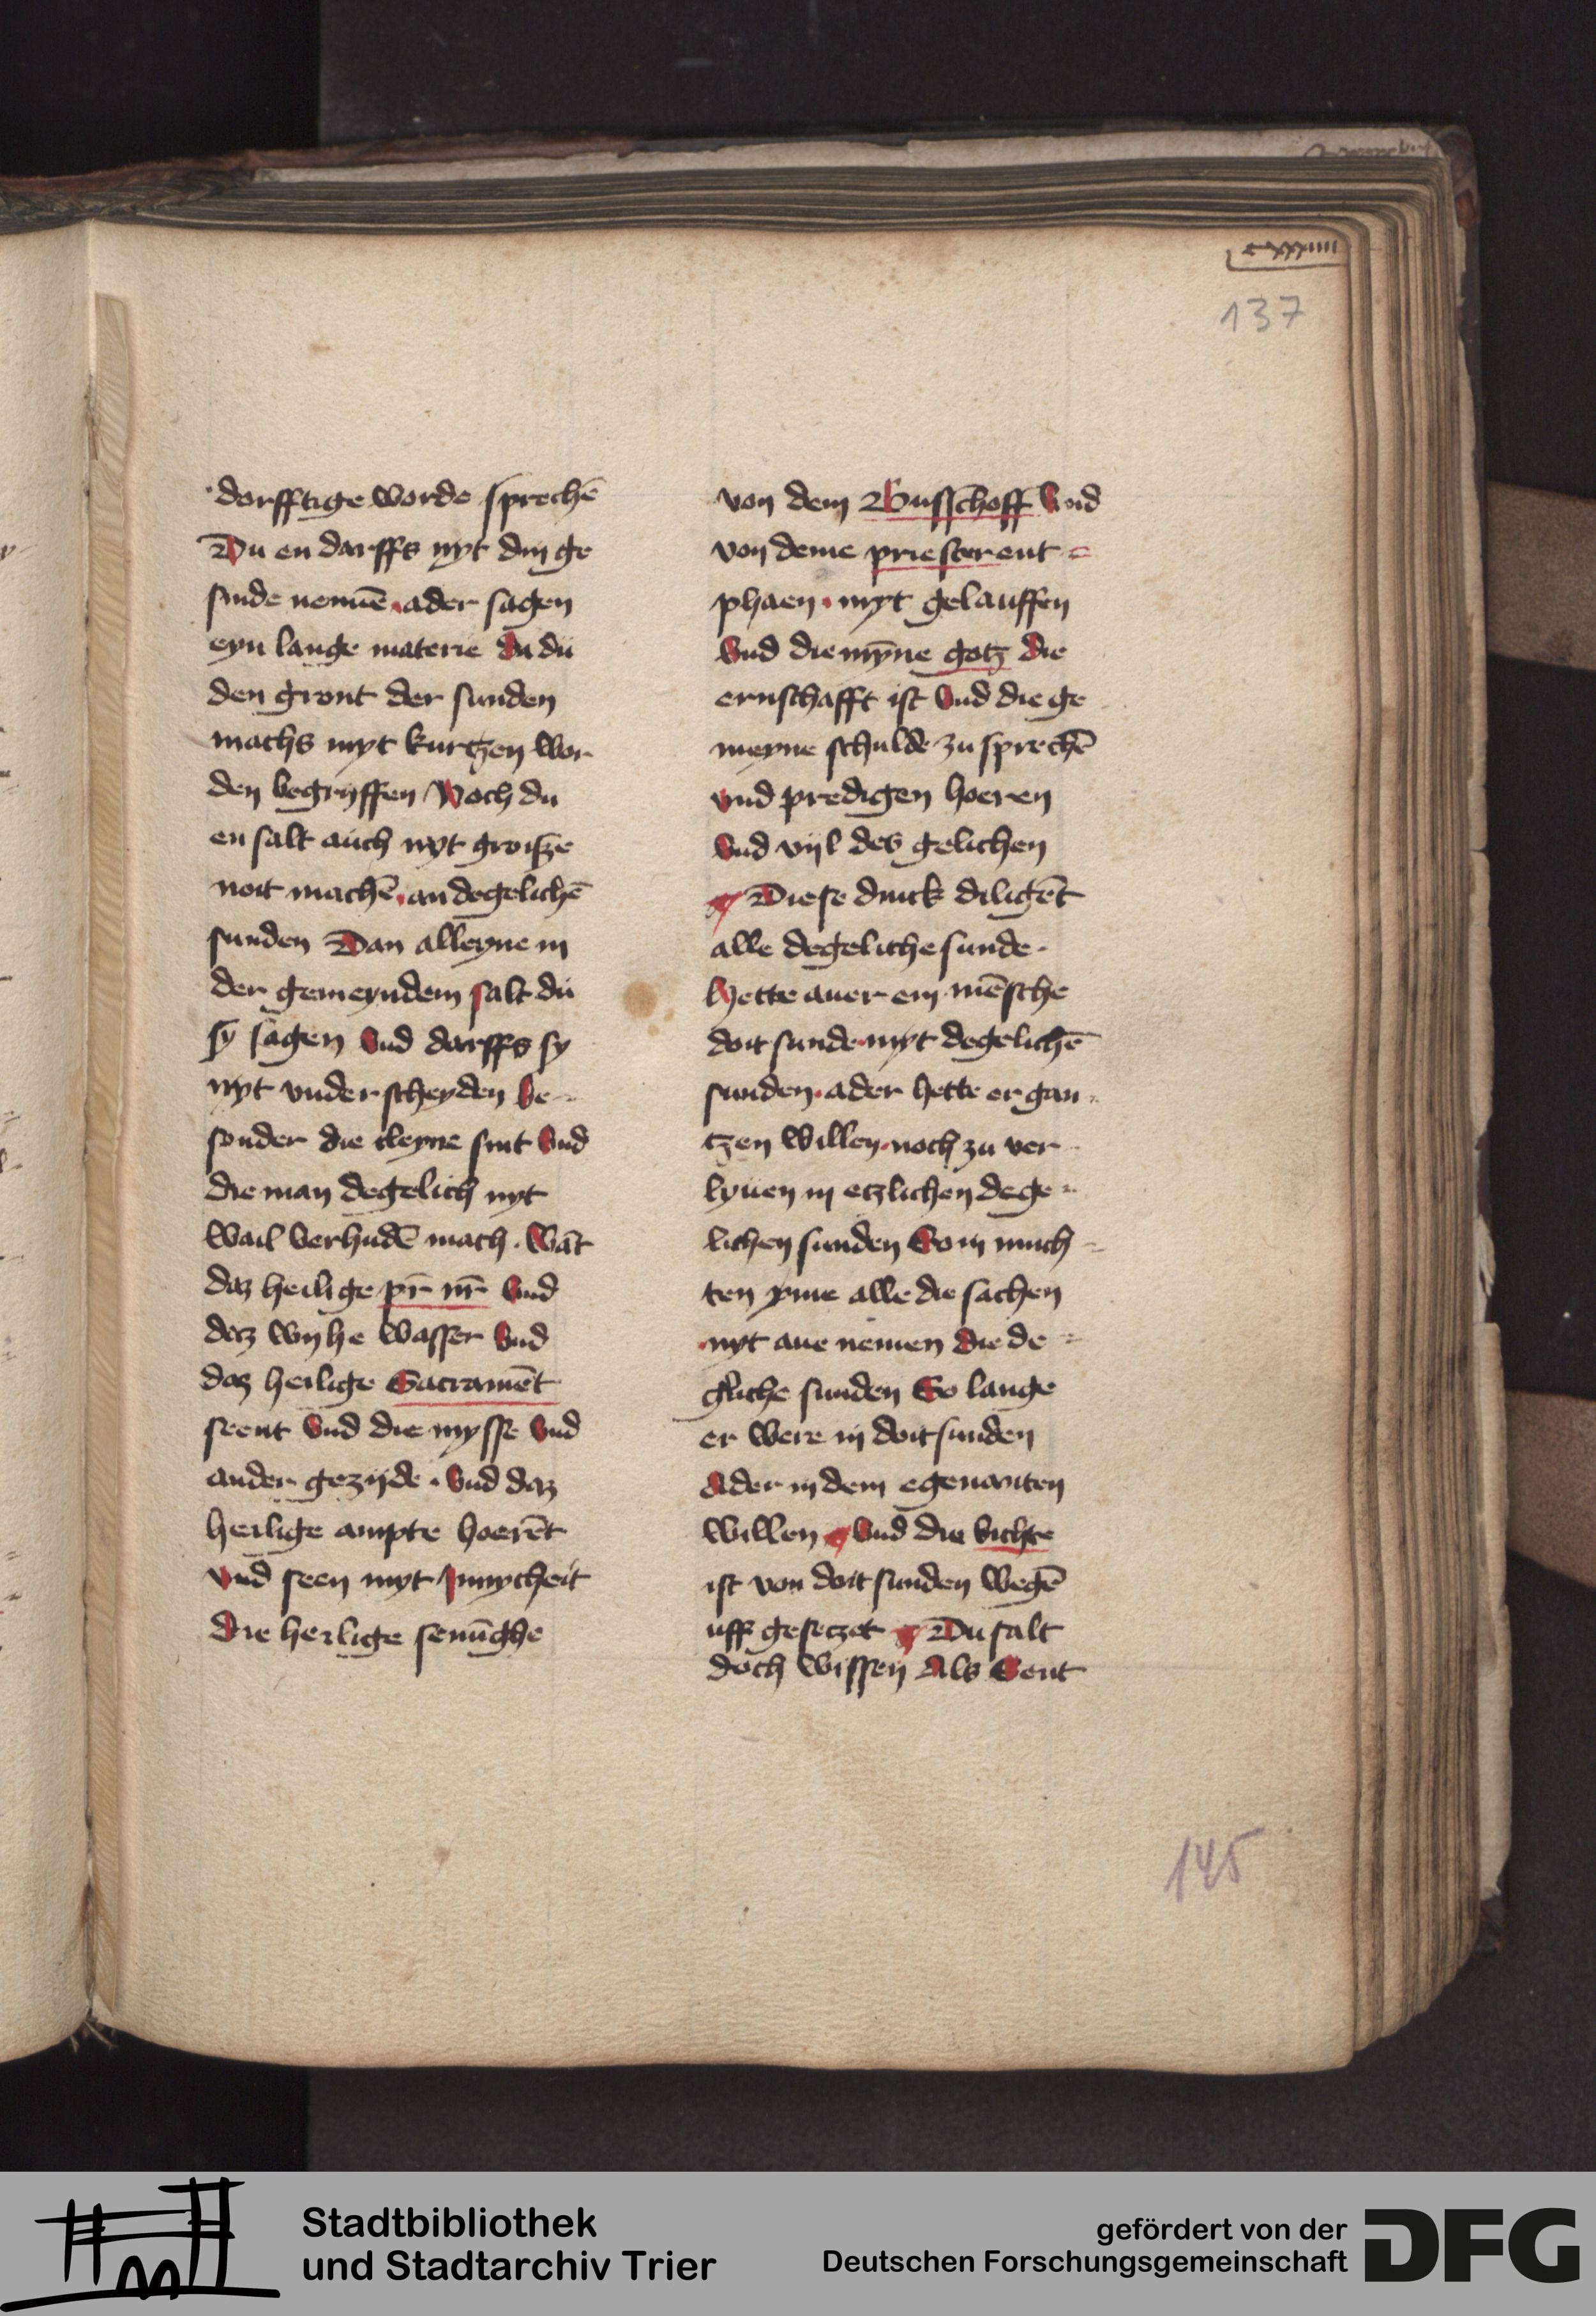 cxxxiiii
137
dorfftige worde sprechē
Du en darffs nyt din ge
sinde nennē ader sagen
eyn lange materie Da du
den gront der sunden
machs myt kurtzen wor
den begryffen Noch du
en salt auch nyt groisze
noit machē an degelichē
sunden Dan alleyne in
der gemeyndem salt du
sy sagen Vnd darffs sy
nyt vnderscheyden be-
sonder die cleyne sint Vnd
die man degelich nyt
wail verhudē mach. Wāt
daz heilige pr̄ nr̄ Vnd
daz wyhe wasser Vnd
daz heilige Sacramēt
seent Vnd die mysse Vnd
ander gezijde. Vnd daz
heilige ampte hoerēt
Vnd seen myt Innycheit
Die heilige senūghe
von dem Busschoff Vnd
von deme priester ent=
phaen. myt gelauffen
Vnd die mȳne gotz Die
ernschafft ist Vnd die ge
meyne schulde zu sprechē
Vnd predigen hoeren
Vnd vijl des gelichen
Diese dinck diligēt
alle degeliche sunde.
Hette auer ein mēsche
doit sunde myt degelichē
sunden. ader hette er gan=
tzen willen. noch zu ver-
lyuen in etzlichen dege=
lichen sunden So in mich-
ten yme alle die sachen
nyt aue nemen Die de=
gliche sunden So lange
er were in doit sunden
Ader in dem egenanten
willen Vnd die bichte
ist von doit sunden wegē
uff gesetzet Du salt
doch wissen Als Sent
145
Stadtbibliothek
und Stadtarchiv Trier
gefördert von der
Deutschen Forschungsgemeinschaft
DFG